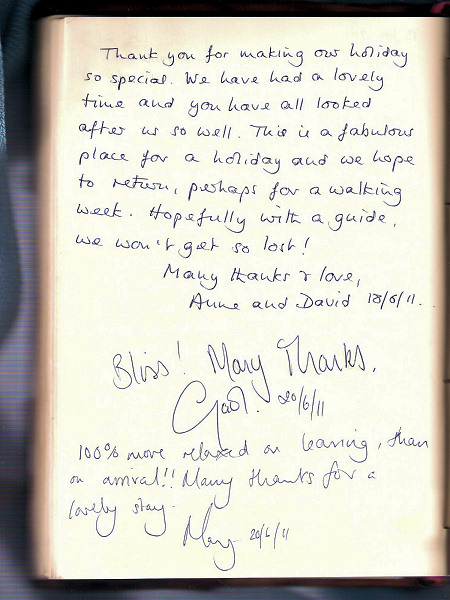 Thank you for making our holiday
so special. We have had a lovely
time and you have all looked
after us so well. This is a fabulous
place for a holiday and we hope
to return, perhaps for a walking
week. Hopefully with a guide,
we won't get so lost!
Many thanks & love,
Anne and David 18/6/11.
Bliss! Many Thanks.
20/6/11
100% more relaxed on leaving, than
on arrival!! Many thanks for a
lovely stay.
Mary 20/6/11